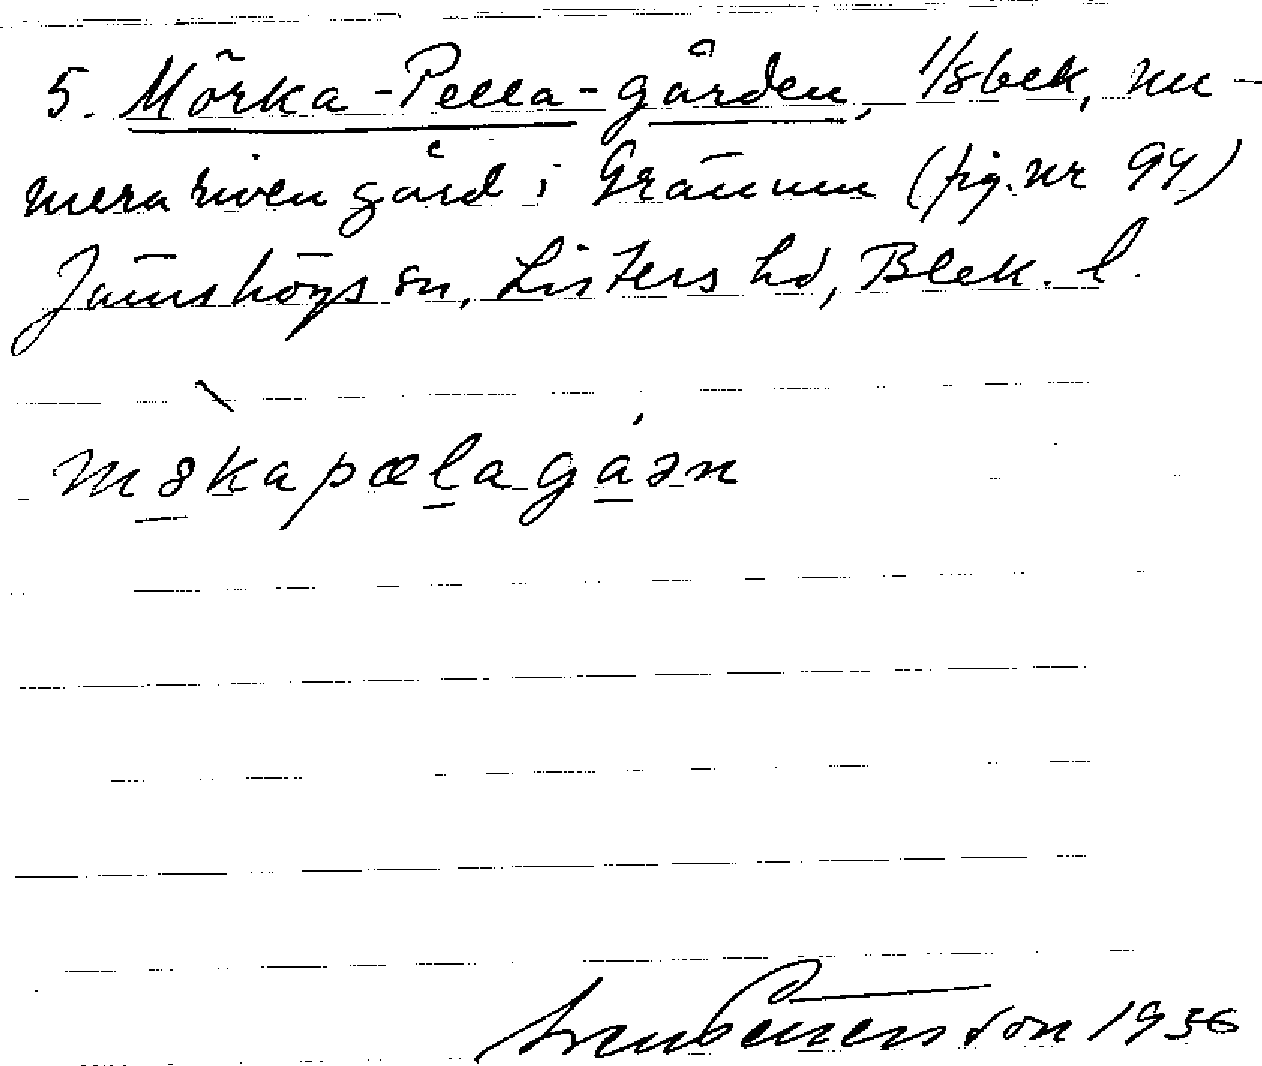 5. Mörka-Pella-gården, 1/8 bek, nu-
mera riven gård i Gränum (fig. nr 94)
Jämshögs sn, Listers hd, Blek. l.
məkapælagaən
Benversson 1956